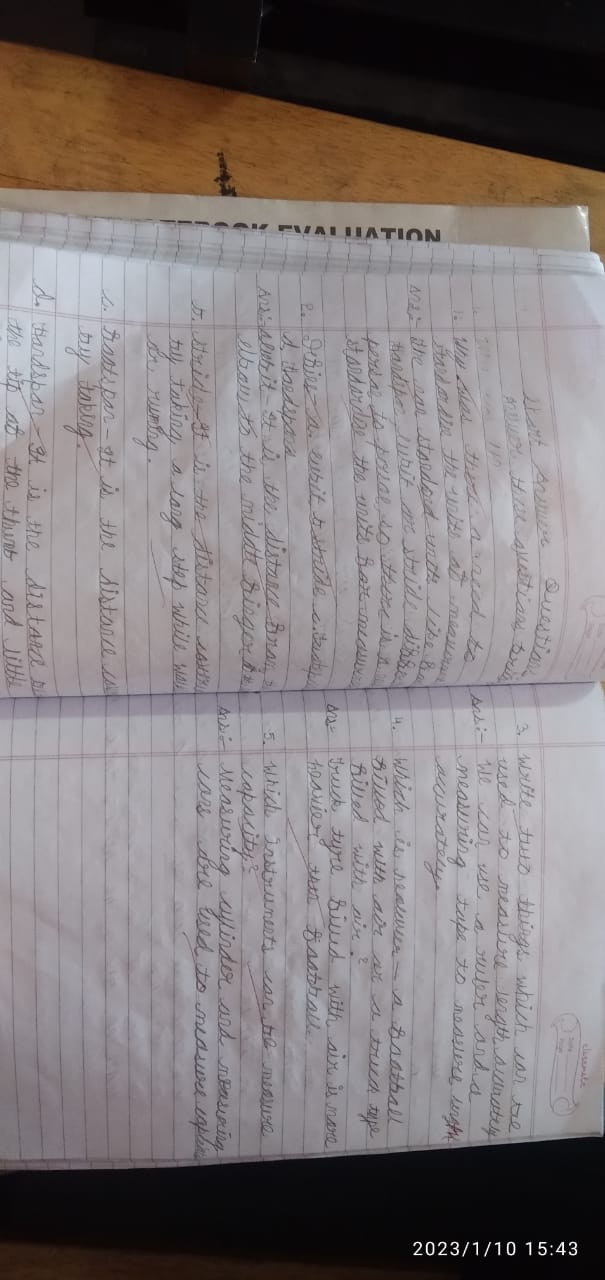 NOTEBOOK EVALUATION
Short Answer Question
Answer these questions
1. Why does there a need to
standardise the units of measurem
Ans:- the non standard units like
handspan, cubit and stride
person to person, so there is a
standardise the units
2. Define - a. cubit b. stride c.
d. Handspan
Ans:- cubit - It is the distance from
elbow to the middle finger
b. stride - It is the distance
by taking a long step while
or runing.
c. - It is the distance
by taking
d. Handspan - It is the distance
the tip of the thumb and little
classmate
Date
Page
3. Write two things which can be
used to measure length accurately
Ans:- We can use a ruler and a
measuring tape to measure length
accurately
4. Which is heavier - a football
filled with air or a truck type
filled with air?
Ans:- truck type filled with air is more
heavier than football.
5. Which instruments can be measure
capacity?
Ans:- Measuring cylinder and measuring
cans are used to measure
2023/1/10 15:43